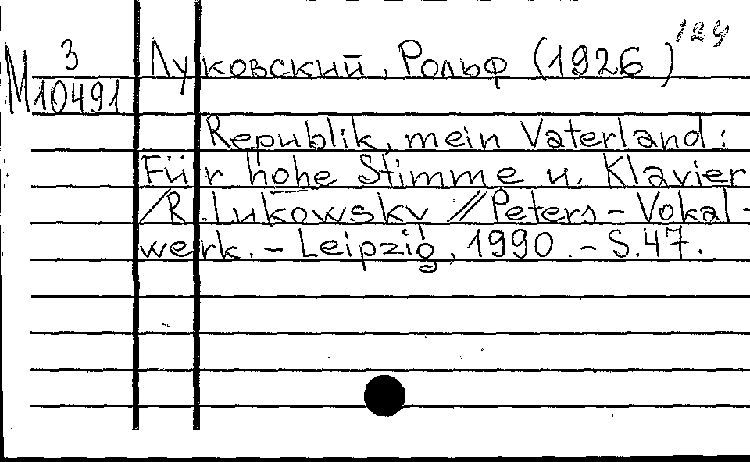 124
М 3 Луковский, Рольф (1926 )
10491
Republik, mein Vaterland:
Für hohe Stimme u. Klavier
/R. Lukowsky // Peters - Vokal-
werk. - Leipzig, 1990. - S.47.